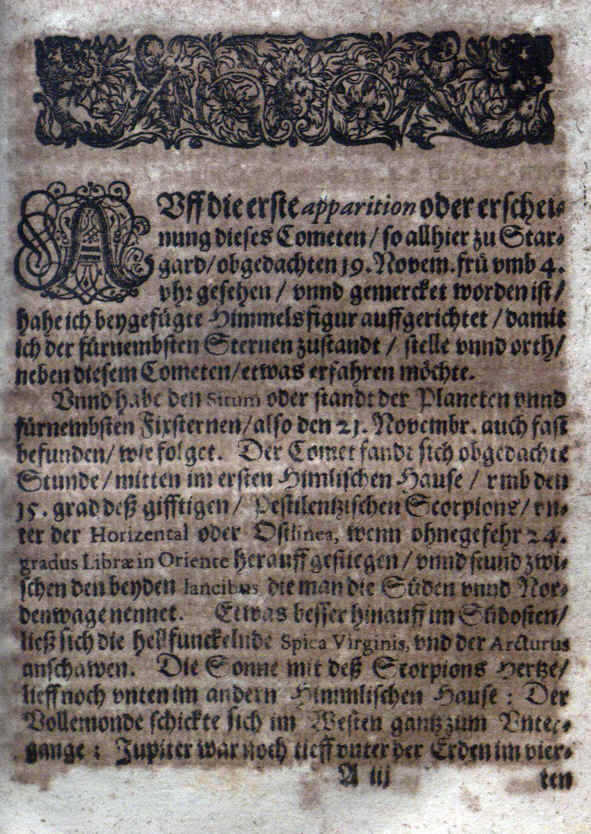 AUff die erste apparition oder erschei-
nung dieses Cometen / so allhier zu Star-
gard / obgedachten 19. Novem. frü vmb 4.
vhr gesehen / vnnd gemercket worden ist /
habe ich beygefügte Himmelsfigur auffgerichtet / damit
ich der fürnembsten Sternen zustandt / stelle vnnd orth /
neben diesem Cometen / etwas erfahren möchte.
Vnnd habe den Situm oder standt der Planeten vnnd
fürnembsten Fixsternen / also den 21. Novembr. auch fast
befunden / wie folget. Der Comet fandt sich obgedachte
Stunde / mitten im ersten Himlischen Hause / vmb den
15. grad deß gifftigen / Pestilentzischen Scorpions / vn-
ter der Horizental oder Ostlinea, wenn ohnegefehr 24.
gradus Libræ in Oriente herauff gestiegen / vnnd stund zwi-
schen den beyden lancibus, die man die Süden vnnd Nor-
denwage nennet. Etwas besser hinauff im Südosten /
ließ sich die hellfunckelnde Spica Virginis, vnd der Arcturus
anschawen. Die Sonne mit deß Scorpions Hertze /
lieff noch vnten im andern Himmlischen Hause : Der
Vollemonde schickte sich im Westen gantz zum Vnter-
gange : Jupiter war noch tieff vnter der Erden im vier-
A iij ten